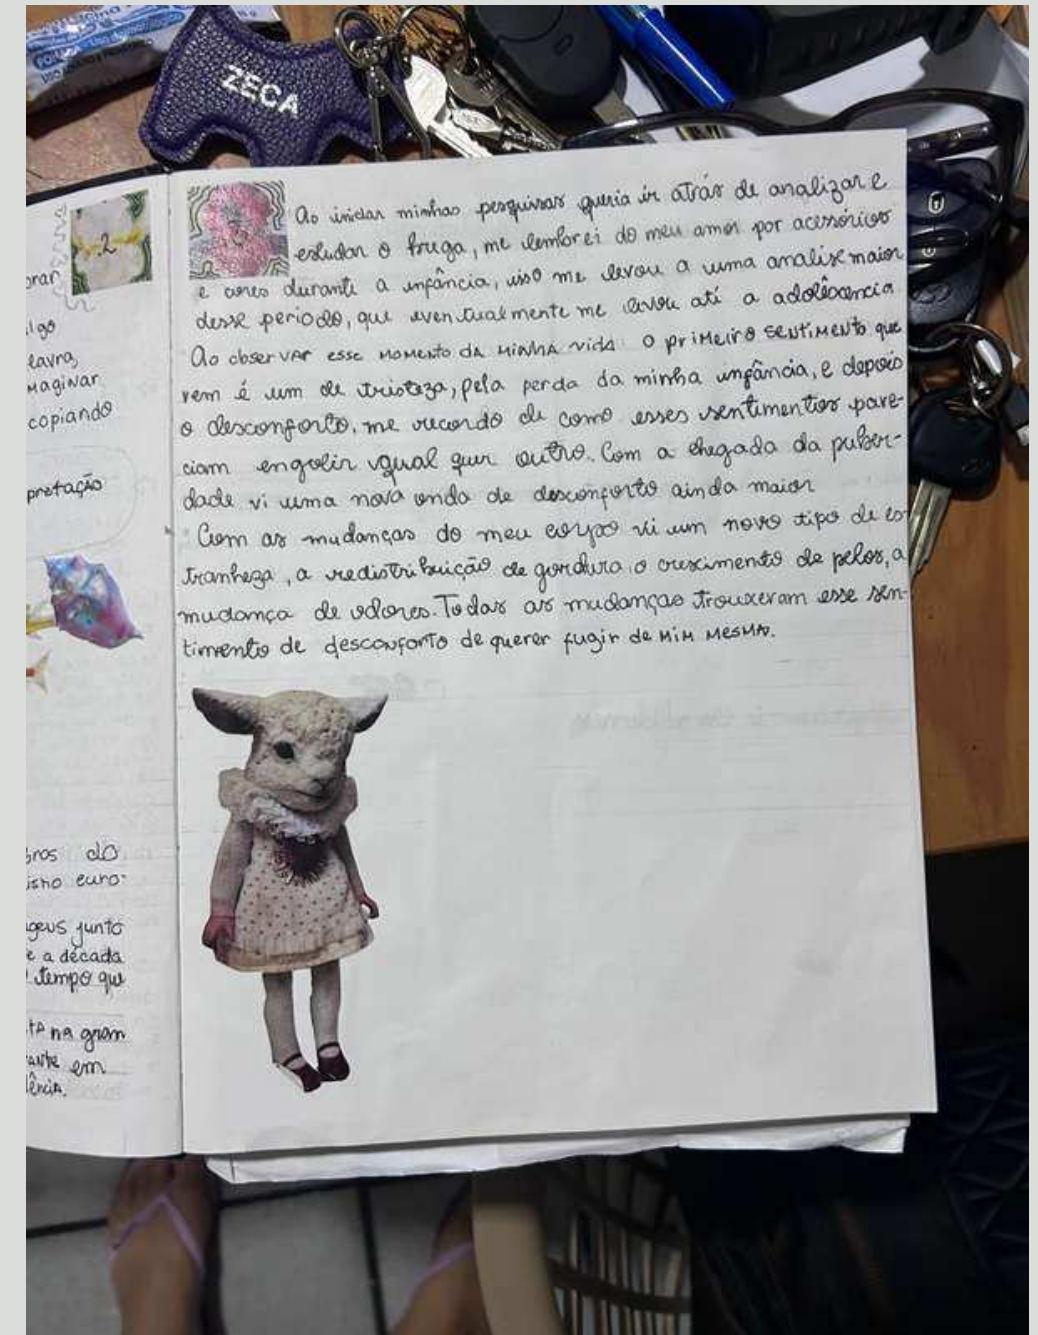 ZECA
2
orar
lgo
lavra,
maginar
copiando
pretação
gros do
ismo euro-
geus junto
e a década
tempo que
na gran
em
ência.
Ao iniciar minhas pesquisas queria ir atrás de analizar e
estudar o fuga, me lembrei do meu amor por acessórios
e ares durante a infância, isso me levou a uma analise maior
desse periodo, que eventualmente me levou até a adolêscencia
Ao observar esse momento da minha vida o primeiro sentimento que
vem é um de tristeza, pela perda da minha infância, e depois
o desconforto, me recordo de como esses sentimentos pare-
ciam engolir qual quer outro. Com a chegada da puber-
dade vi uma nova onda de desconforto ainda maior
Com as mudanças do meu corpo vi um novo tipo de es
tranheza, a redistribuição de gordura o crescimento de pelos, a
mudança de odores. Todas as mudanças trouxeram esse sen-
timento de desconforto de querer fugir de mim mesma.